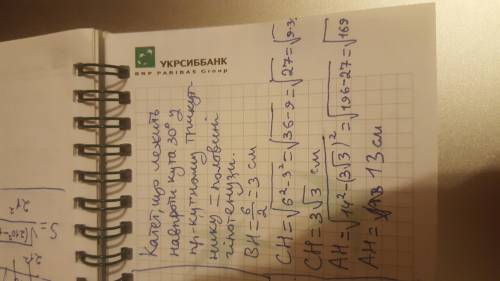 УКРСИББАНК
BNP PARIBAS Group
Катет, що лежить
навпроти кута 30° у
пр-кутному трикут-
нику = половині
гіпотенузи.
BH = 6/2 = 3 см
CH = √(6² - 3²) = √(36 - 9) = √27 = √(9·3)
CH = 3√3 см
AH = √(14² - (3√3)²) = √(196 - 27) = √169
AH = 13 см
S =